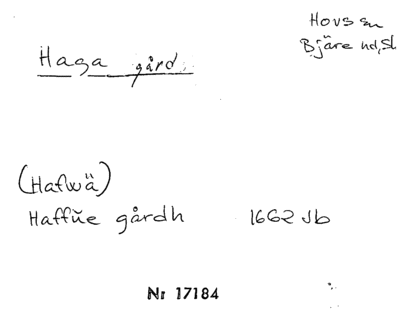 Hovs sn
Bjäre hd, Sk
Haga gård.
(Haflwä)
Haffŭe gårdh 1662 Jb
Nr 17184